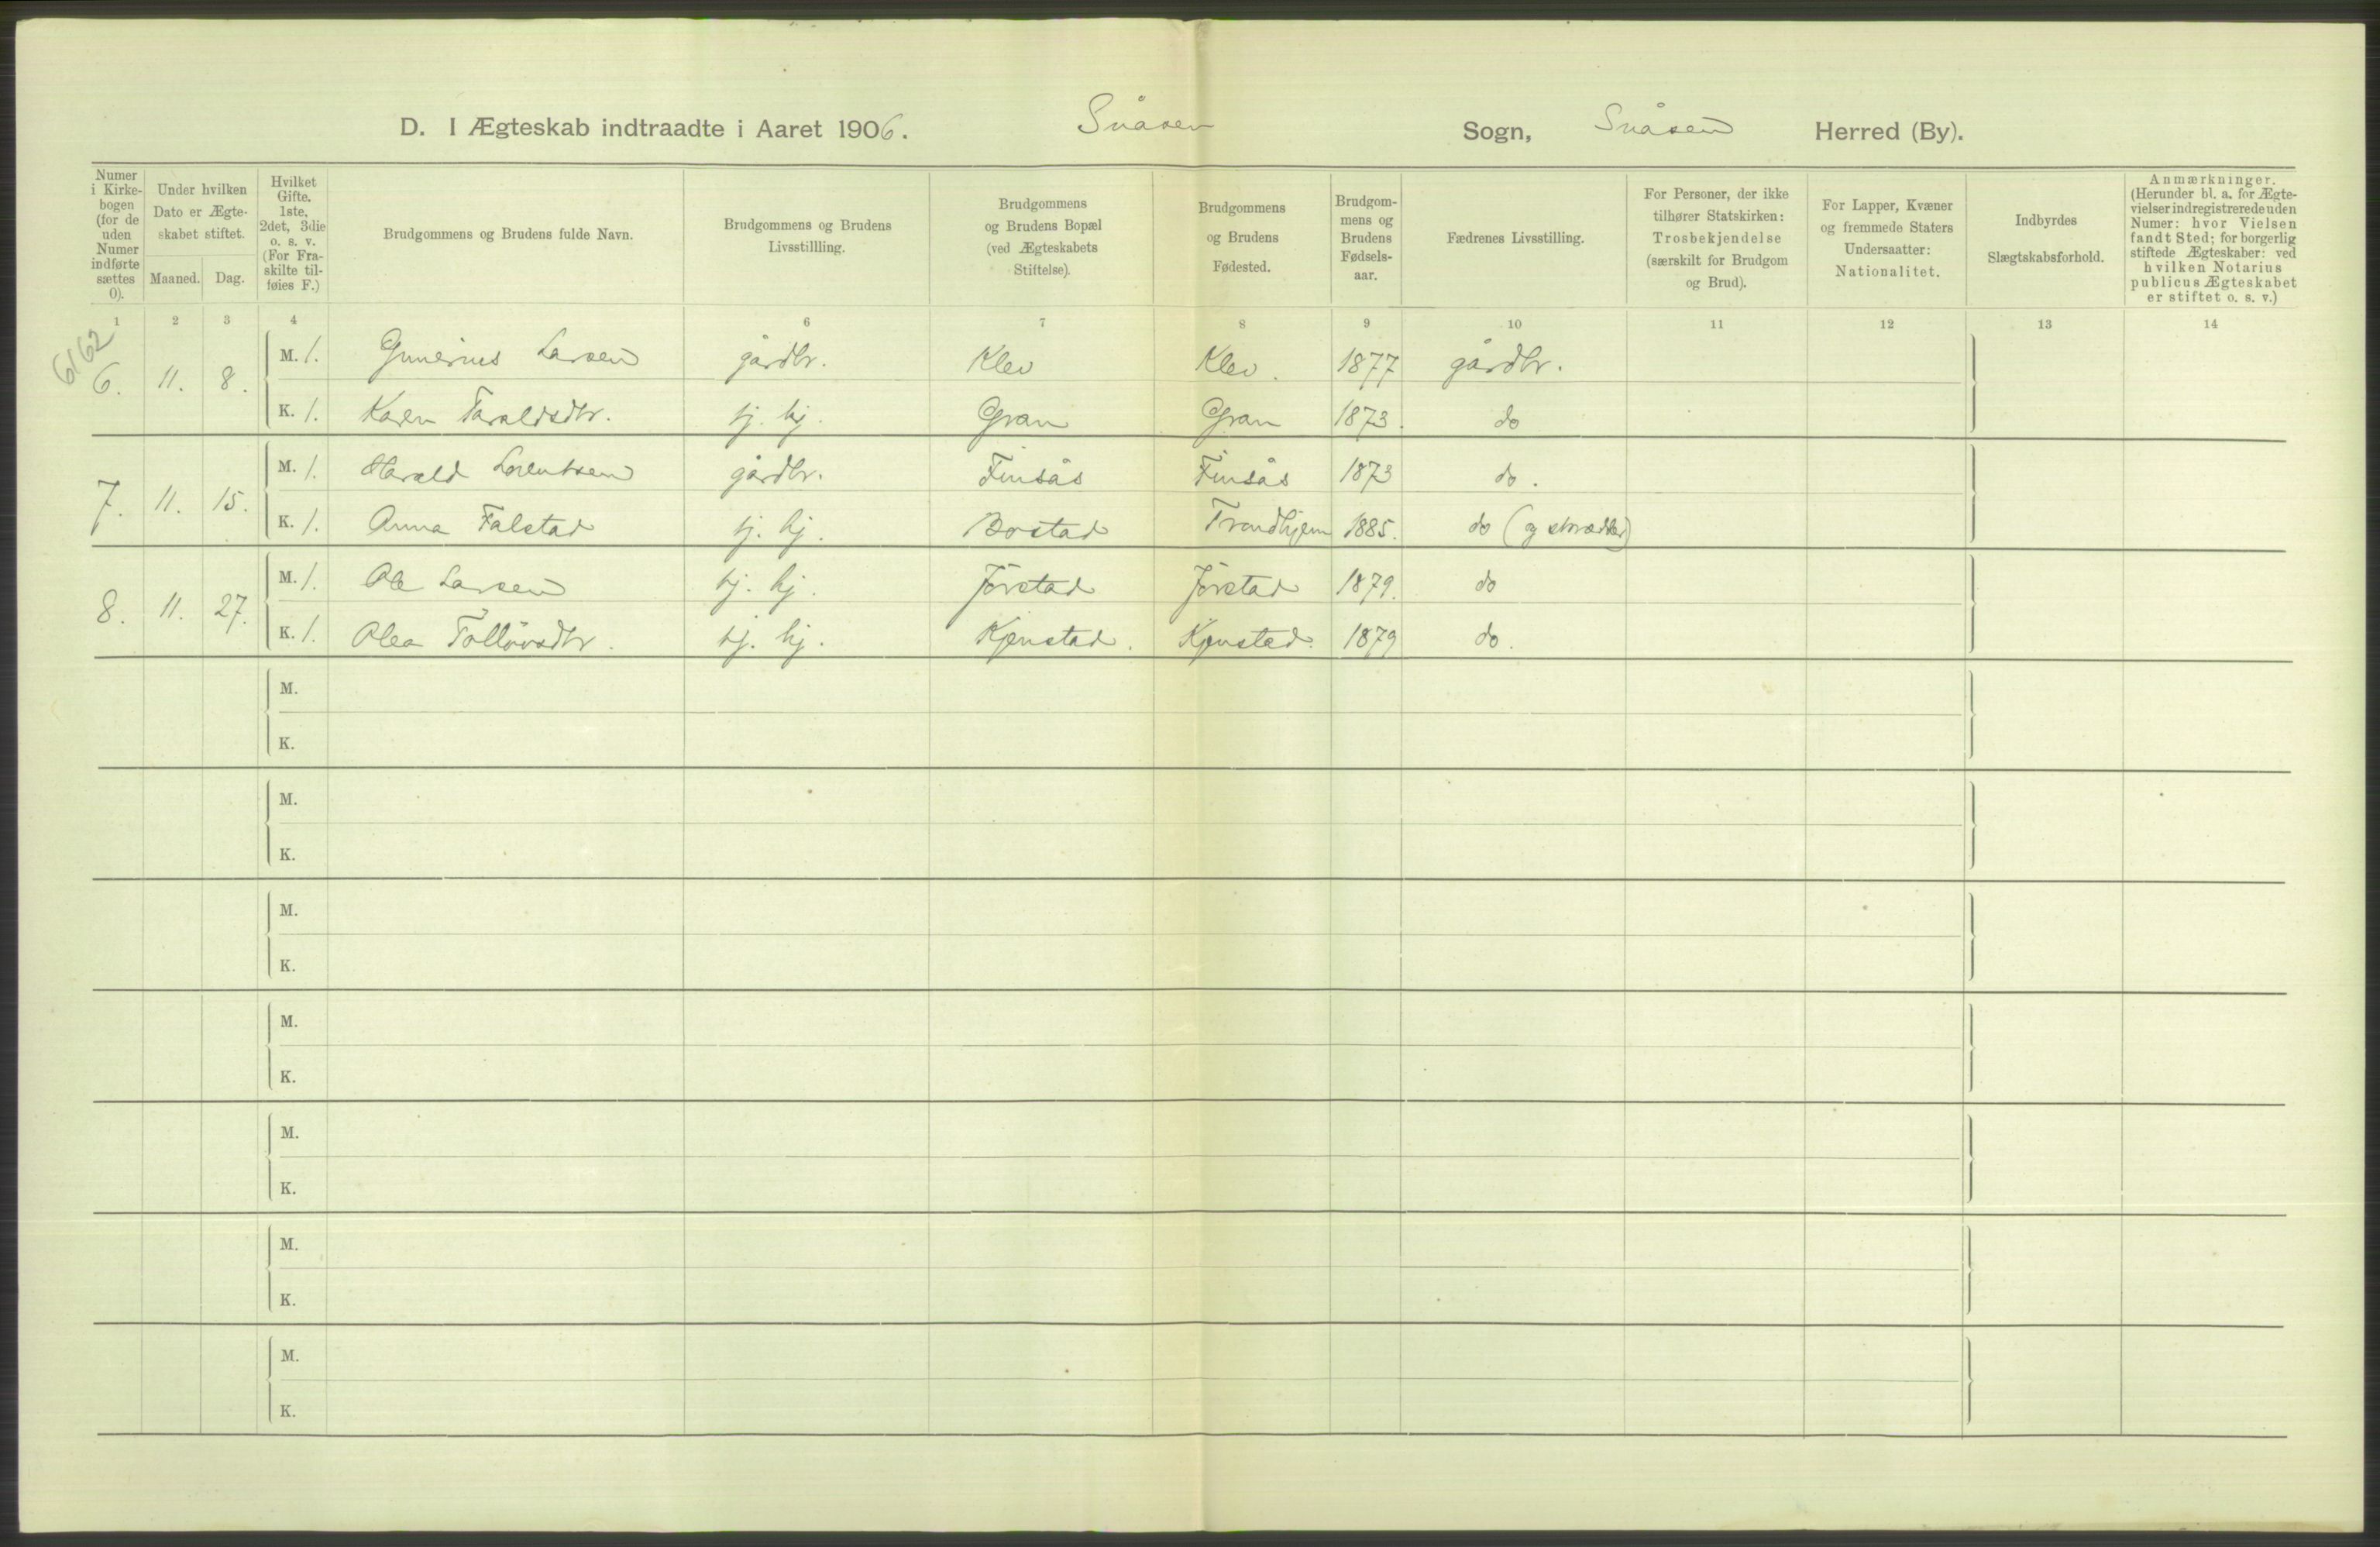 D. I Ægteskab indtraadte i Aaret 1906. Snåsen Sogn, Snåsen Herred (By).
Numer i Kirke-bogen (for de uden Numer indførte sættes 0).
Under hvilken Dato er Ægte-skabet stiftet.
Maaned. Dag.
Hvilket Gifte. 1ste, 2det, 3die o. s. v. (For Fra-skilte til-føies F.)
Brudgommens og Brudens fulde Navn.
Brudgommens og Brudens Livsstillling.
Brudgommens og Brudens Bopæl (ved Ægteskabets Stiftelse).
Brudgommens og Brudens Fødested.
Brudgom-mens og Brudens Fødsels-aar.
Fædrenes Livsstilling.
For Personer, der ikke tilhører Statskirken: Trosbekjendelse (særskilt for Brudgom og Brud).
For Lapper, Kvæner og fremmede Staters Undersaatter: Nationalitet.
Indbyrdes Slægtskabsforhold.
Anmærkninger. (Herunder bl. a. for Ægte-vielser indregistrerede uden Numer: hvor Vielsen fandt Sted; for borgerlig stiftede Ægteskaber: ved hvilken Notarius publicus Ægteskabet er stiftet o. s. v.)
1 2 3 4 6 7 8 9 10 11 12 13 14
6162
6. 11. 8. M. 1. Gunerius Larsen gårdbr. Klev Klev. 1877 gårdbr.
K. 1. Karen Taraldsdtr. hj. hj. Gran Gran 1873. do
7. 11. 15. M. 1. Harald Lorentsen gårdbr. Finsås Finsås 1873 do.
K. 1. Anna Falstad hj. hj. Bostad Trondhjem 1885. do (og skrædder)
8. 11. 27. M. 1. Ole Larsen hj. hj. Jörstad Jörstad 1879. do
K. 1. Olea Tollövsdtr. hj. hj. Kjenstad. Kjenstad. 1879 do.
M.
K.
M.
K.
M.
K.
M.
K.
M.
K.
M.
K.
M.
K.